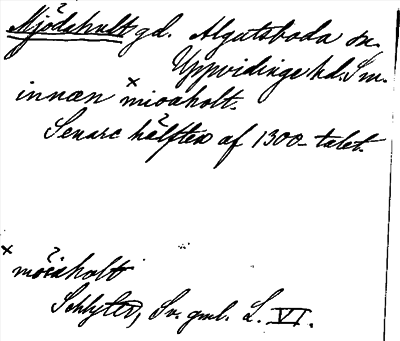 Mjödahult gd. Algutsboda sn.
Uppvidinge hd. Sm.
innæn mioaholt. ×
Senare hälften af 1300-talet.
× möiaholt
Schlyter, Sv. gml. L. VI.